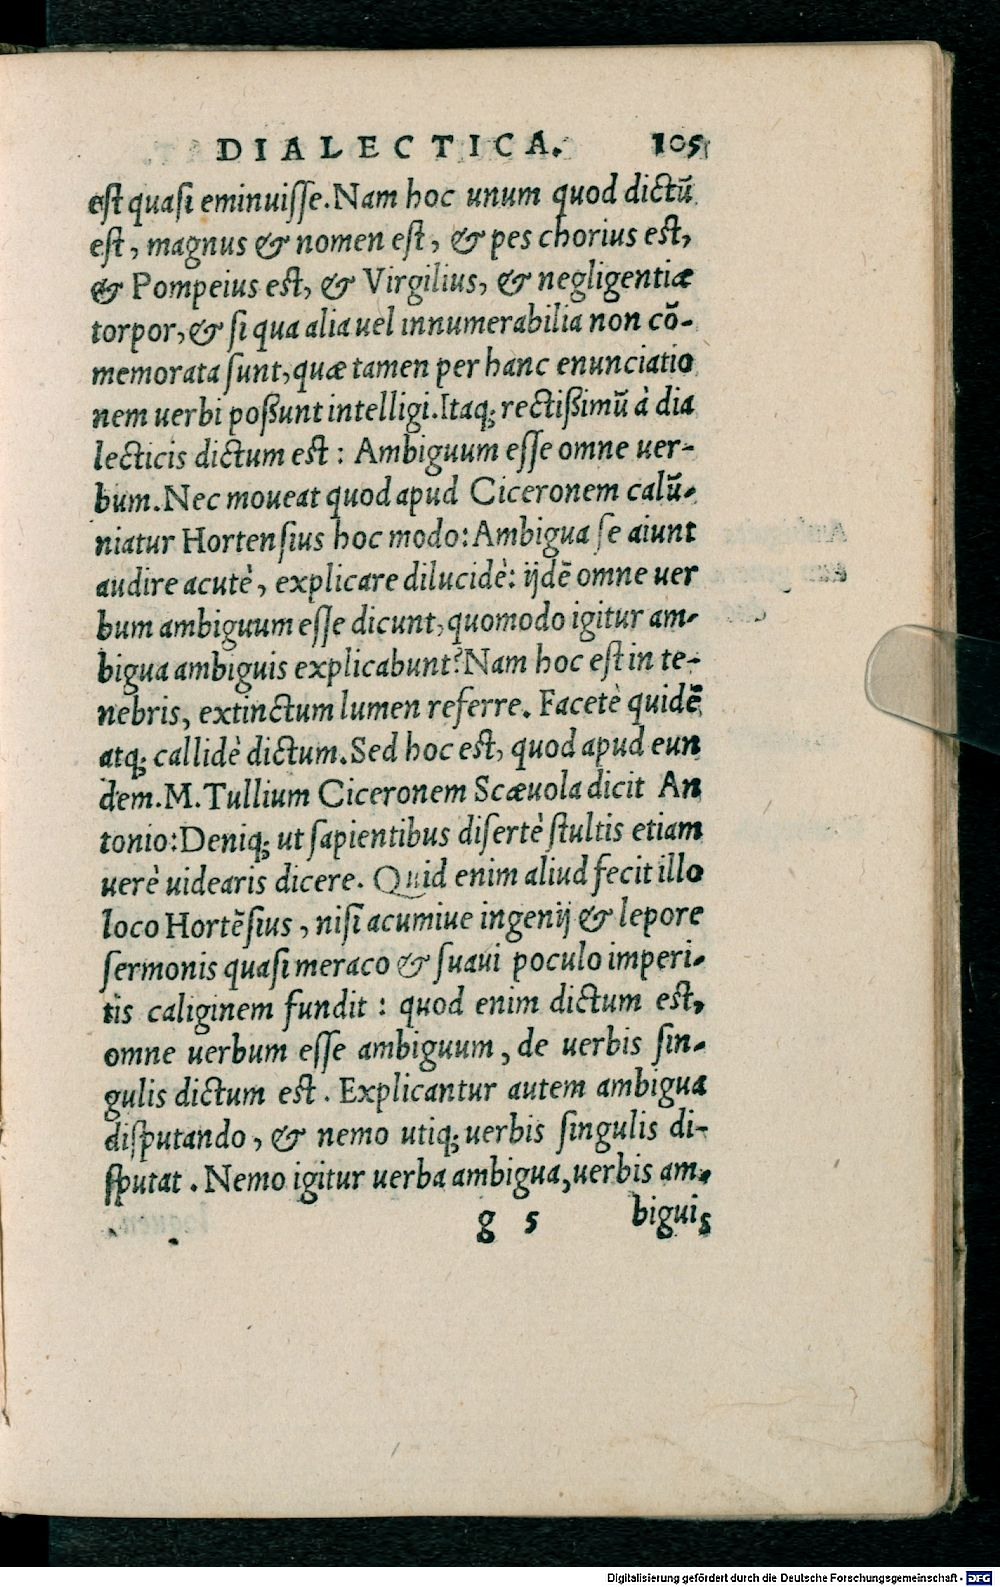 DIALECTICA. 105
est quasi eminuisse. Nam hoc unum quod dictũ
est, magnus & nomen est, & pes chorius est,
& Pompeius est, & Virgilius, & negligentiæ
torpor, & si qua alia uel innumerabilia non cõ-
memorata sunt, quæ tamen per hanc enunciatio
nem uerbi poßunt intelligi. Itaq; rectißimũ à dia
lecticis dictum est: Ambiguum esse omne uer-
bum. Nec moueat quod apud Ciceronem calũ-
niatur Hortensius hoc modo: Ambigua se aiunt
audire acutè, explicare dilucidè: ijdẽ omne uer
bum ambiguum esse dicunt, quomodo igitur am-
bigua ambiguis explicabunt? Nam hoc est in te-
nebris, extinctum lumen referre. Facetè quidẽ
atq; callidè dictum. Sed hoc est, quod apud eun
dem. M. Tullium Ciceronem Scæuola dicit An
tonio: Deniq; ut sapientibus disertè stultis etiam
uerè uidearis dicere. Quid enim aliud fecit illo
loco Hortẽsius, nisi acumiue ingenij & lepore
sermonis quasi meraco & suaui poculo imperi-
tis caliginem fundit: quod enim dictum est,
omne uerbum esse ambiguum, de uerbis sin-
gulis dictum est. Explicantur autem ambigua
disputando, & nemo utiq; uerbis singulis di-
sputat. Nemo igitur uerba ambigua, uerbis am-
g 5 biguis
Digitalisierung gefördert durch die Deutsche Forschungsgemeinschaft - DFG